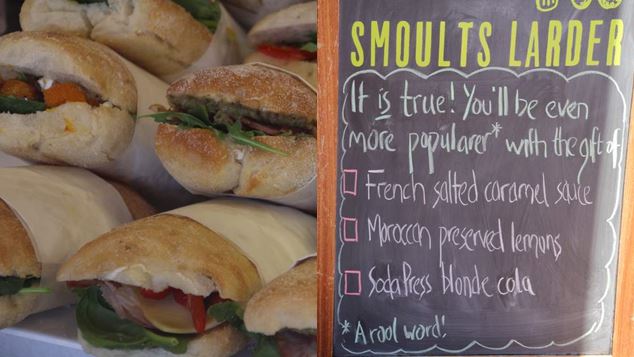 SMOULTS LARDER
It is true! You'll be even
more popularer* with the gift of
French salted caramel sauce
Moroccan preserved lemons
SodaPress blonde cola
* A rool word!